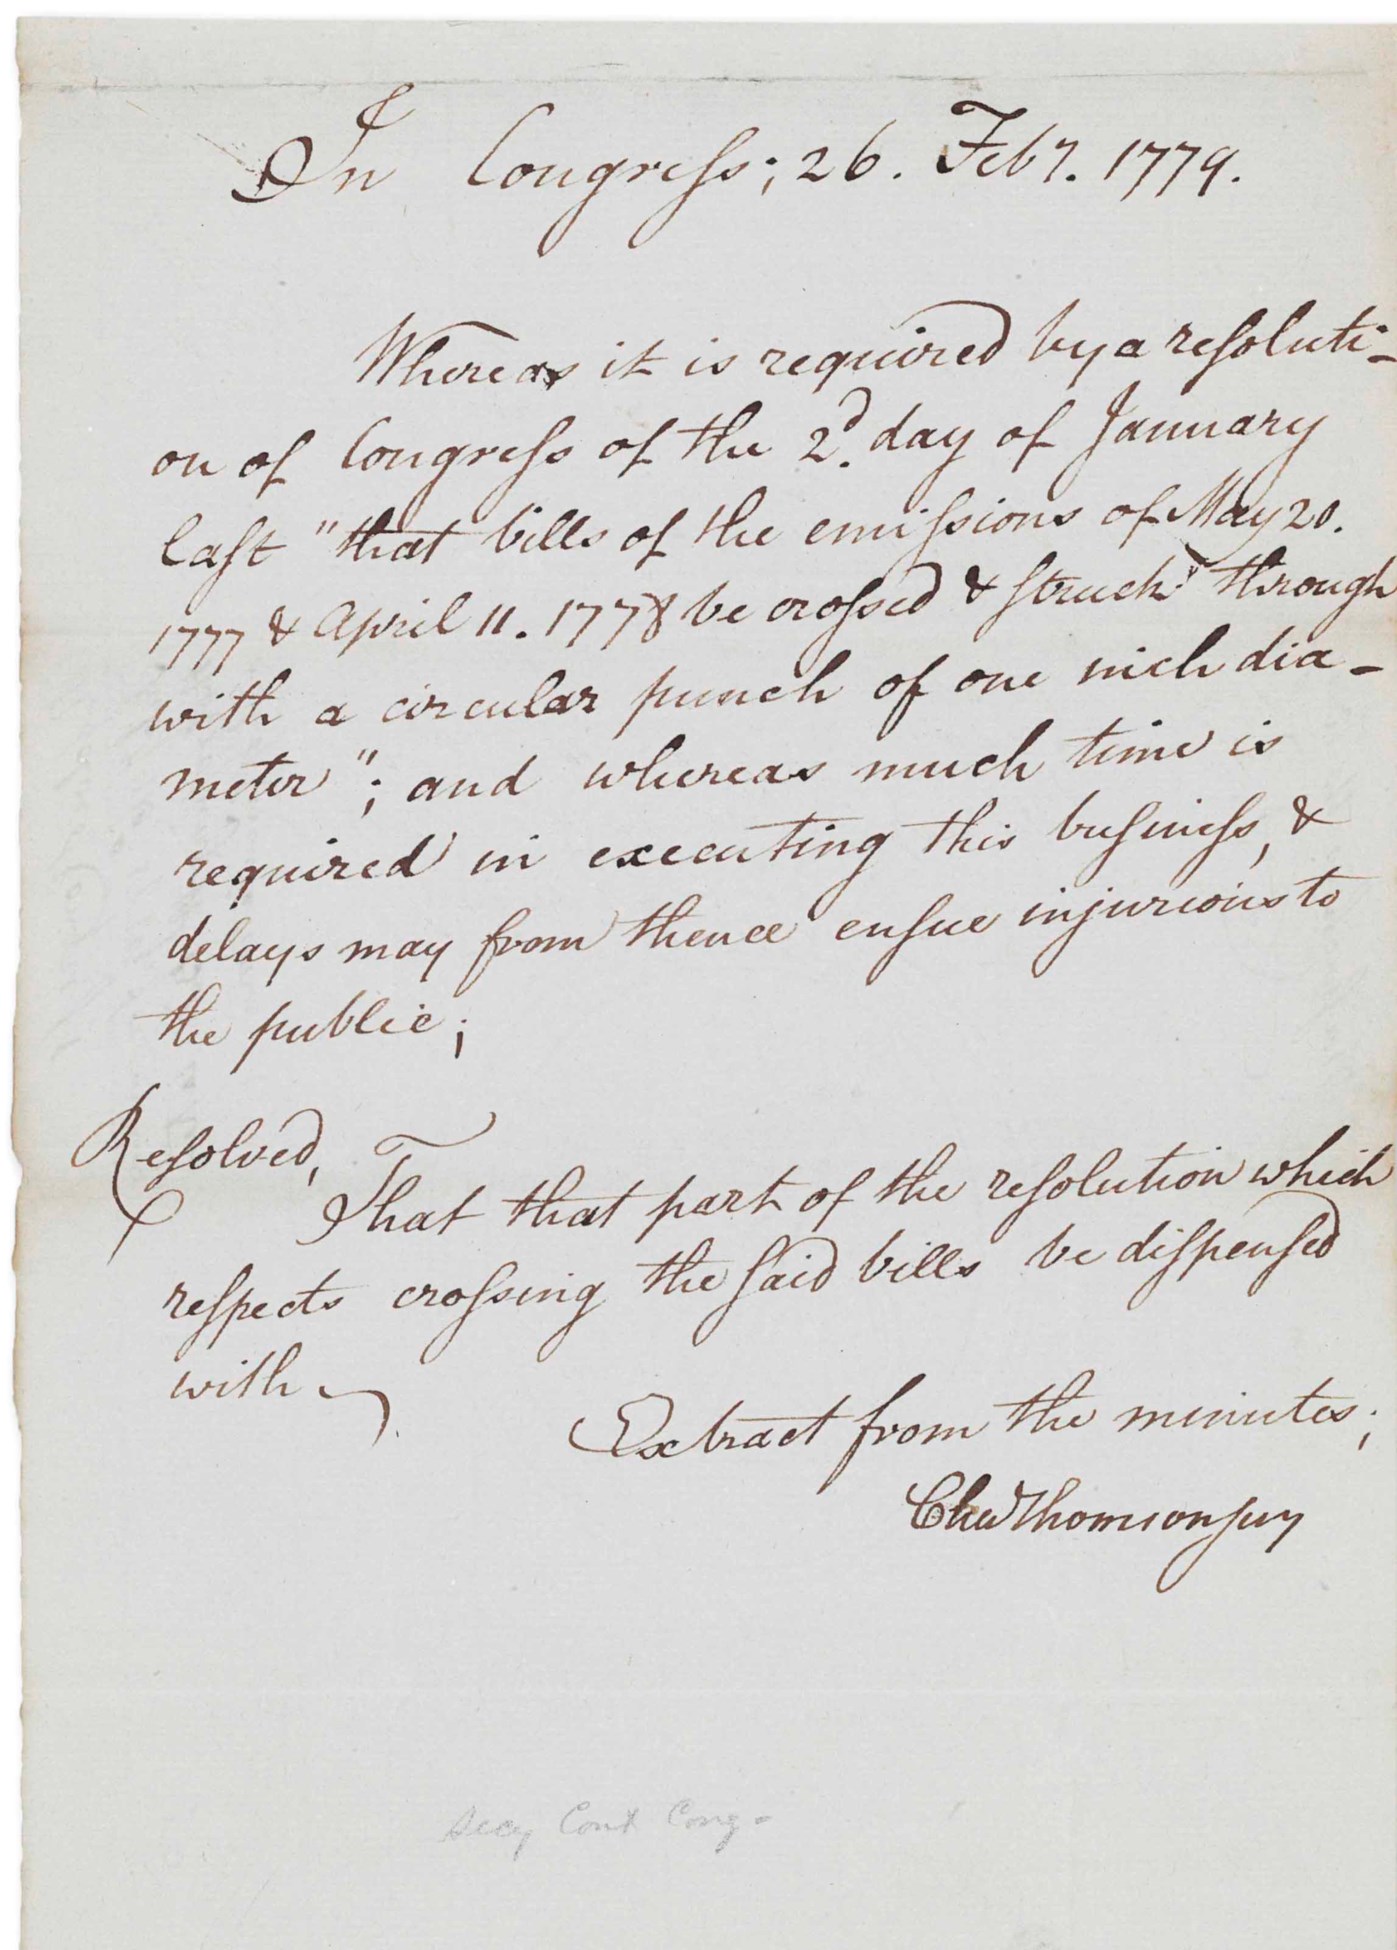 In Congress; 26. Feby. 1779.
Whereas it is required by a resoluti-
on of Congress of the 2d. day of January
last "that bills of the emissions of May 20.
1777 & April 11. 1778 be crossed & struck through
with a circular punch of one inch dia-
meter"; and whereas much time is
required in executing this business, &
delays may from thence ensue injurious to
the public;
Resolved,
That that part of the resolution which
respects crossing the said bills be dispensed
with
Extract from the minutes;
Chas Thomson secy
Secy Cont Cong-